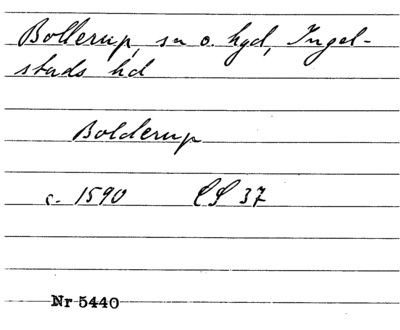 Bollerup, sn o. hgd, Ingel-
stads hd
Bolderup
c. 1590 CS 37
Nr 5440